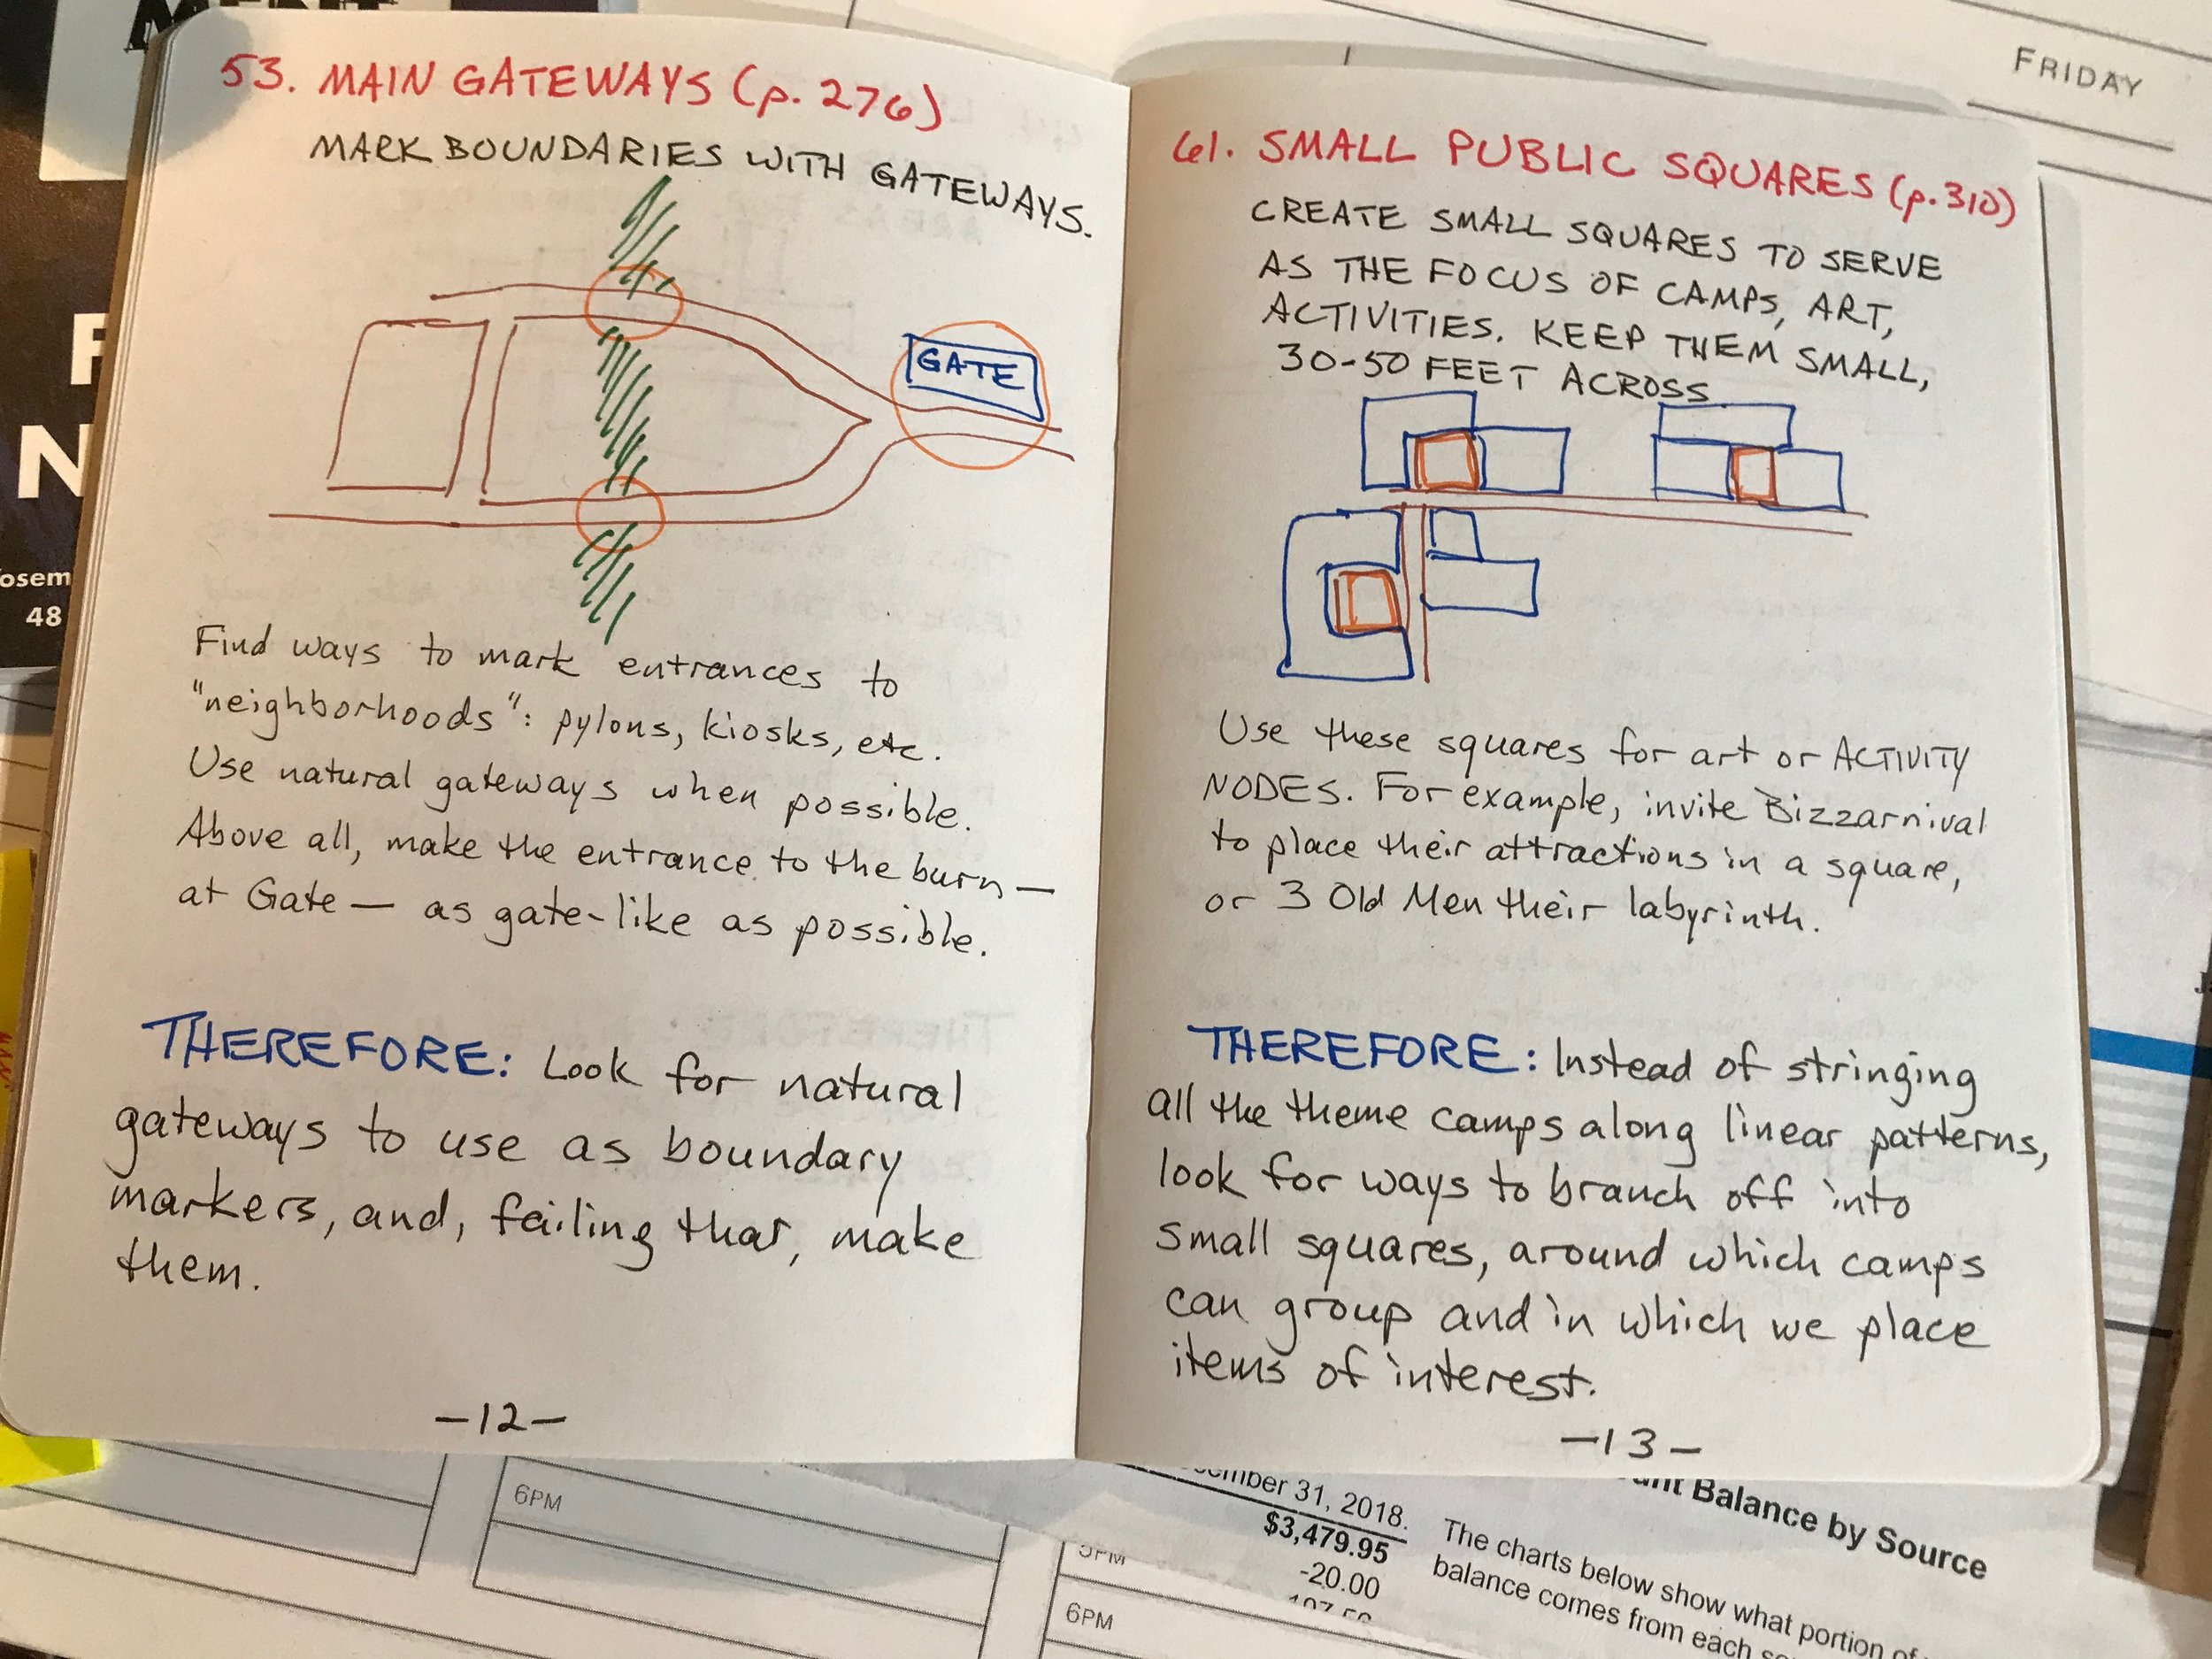 53. MAIN GATEWAYS (p. 276)
MARK BOUNDARIES WITH GATEWAYS.
GATE
Find ways to mark entrances to
"neighborhoods": pylons, kiosks, etc.
Use natural gateways when possible.
Above all, make the entrance to the burn —
at Gate — as gate-like as possible.
THEREFORE: Look for natural
gateways to use as boundary
markers, and, failing that, make
them.
-12-
61. SMALL PUBLIC SQUARES (p.310)
CREATE SMALL SQUARES TO SERVE
AS THE FOCUS OF CAMPS, ART,
ACTIVITIES. KEEP THEM SMALL,
30-50 FEET ACROSS
Use these squares for art or ACTIVITY
NODES. For example, invite Bizzarnival
to place their attractions in a square,
or 3 Old Men their labyrinth.
THEREFORE: Instead of stringing
all the theme camps along linear patterns,
look for ways to branch off into
small squares, around which camps
can group and in which we place
items of interest.
-13-
FRIDAY
48
6PM
31, 2018.
$3,479.95
-20.00
5PM
6PM
Balance by Source
The charts below show what portion of
balance comes from each